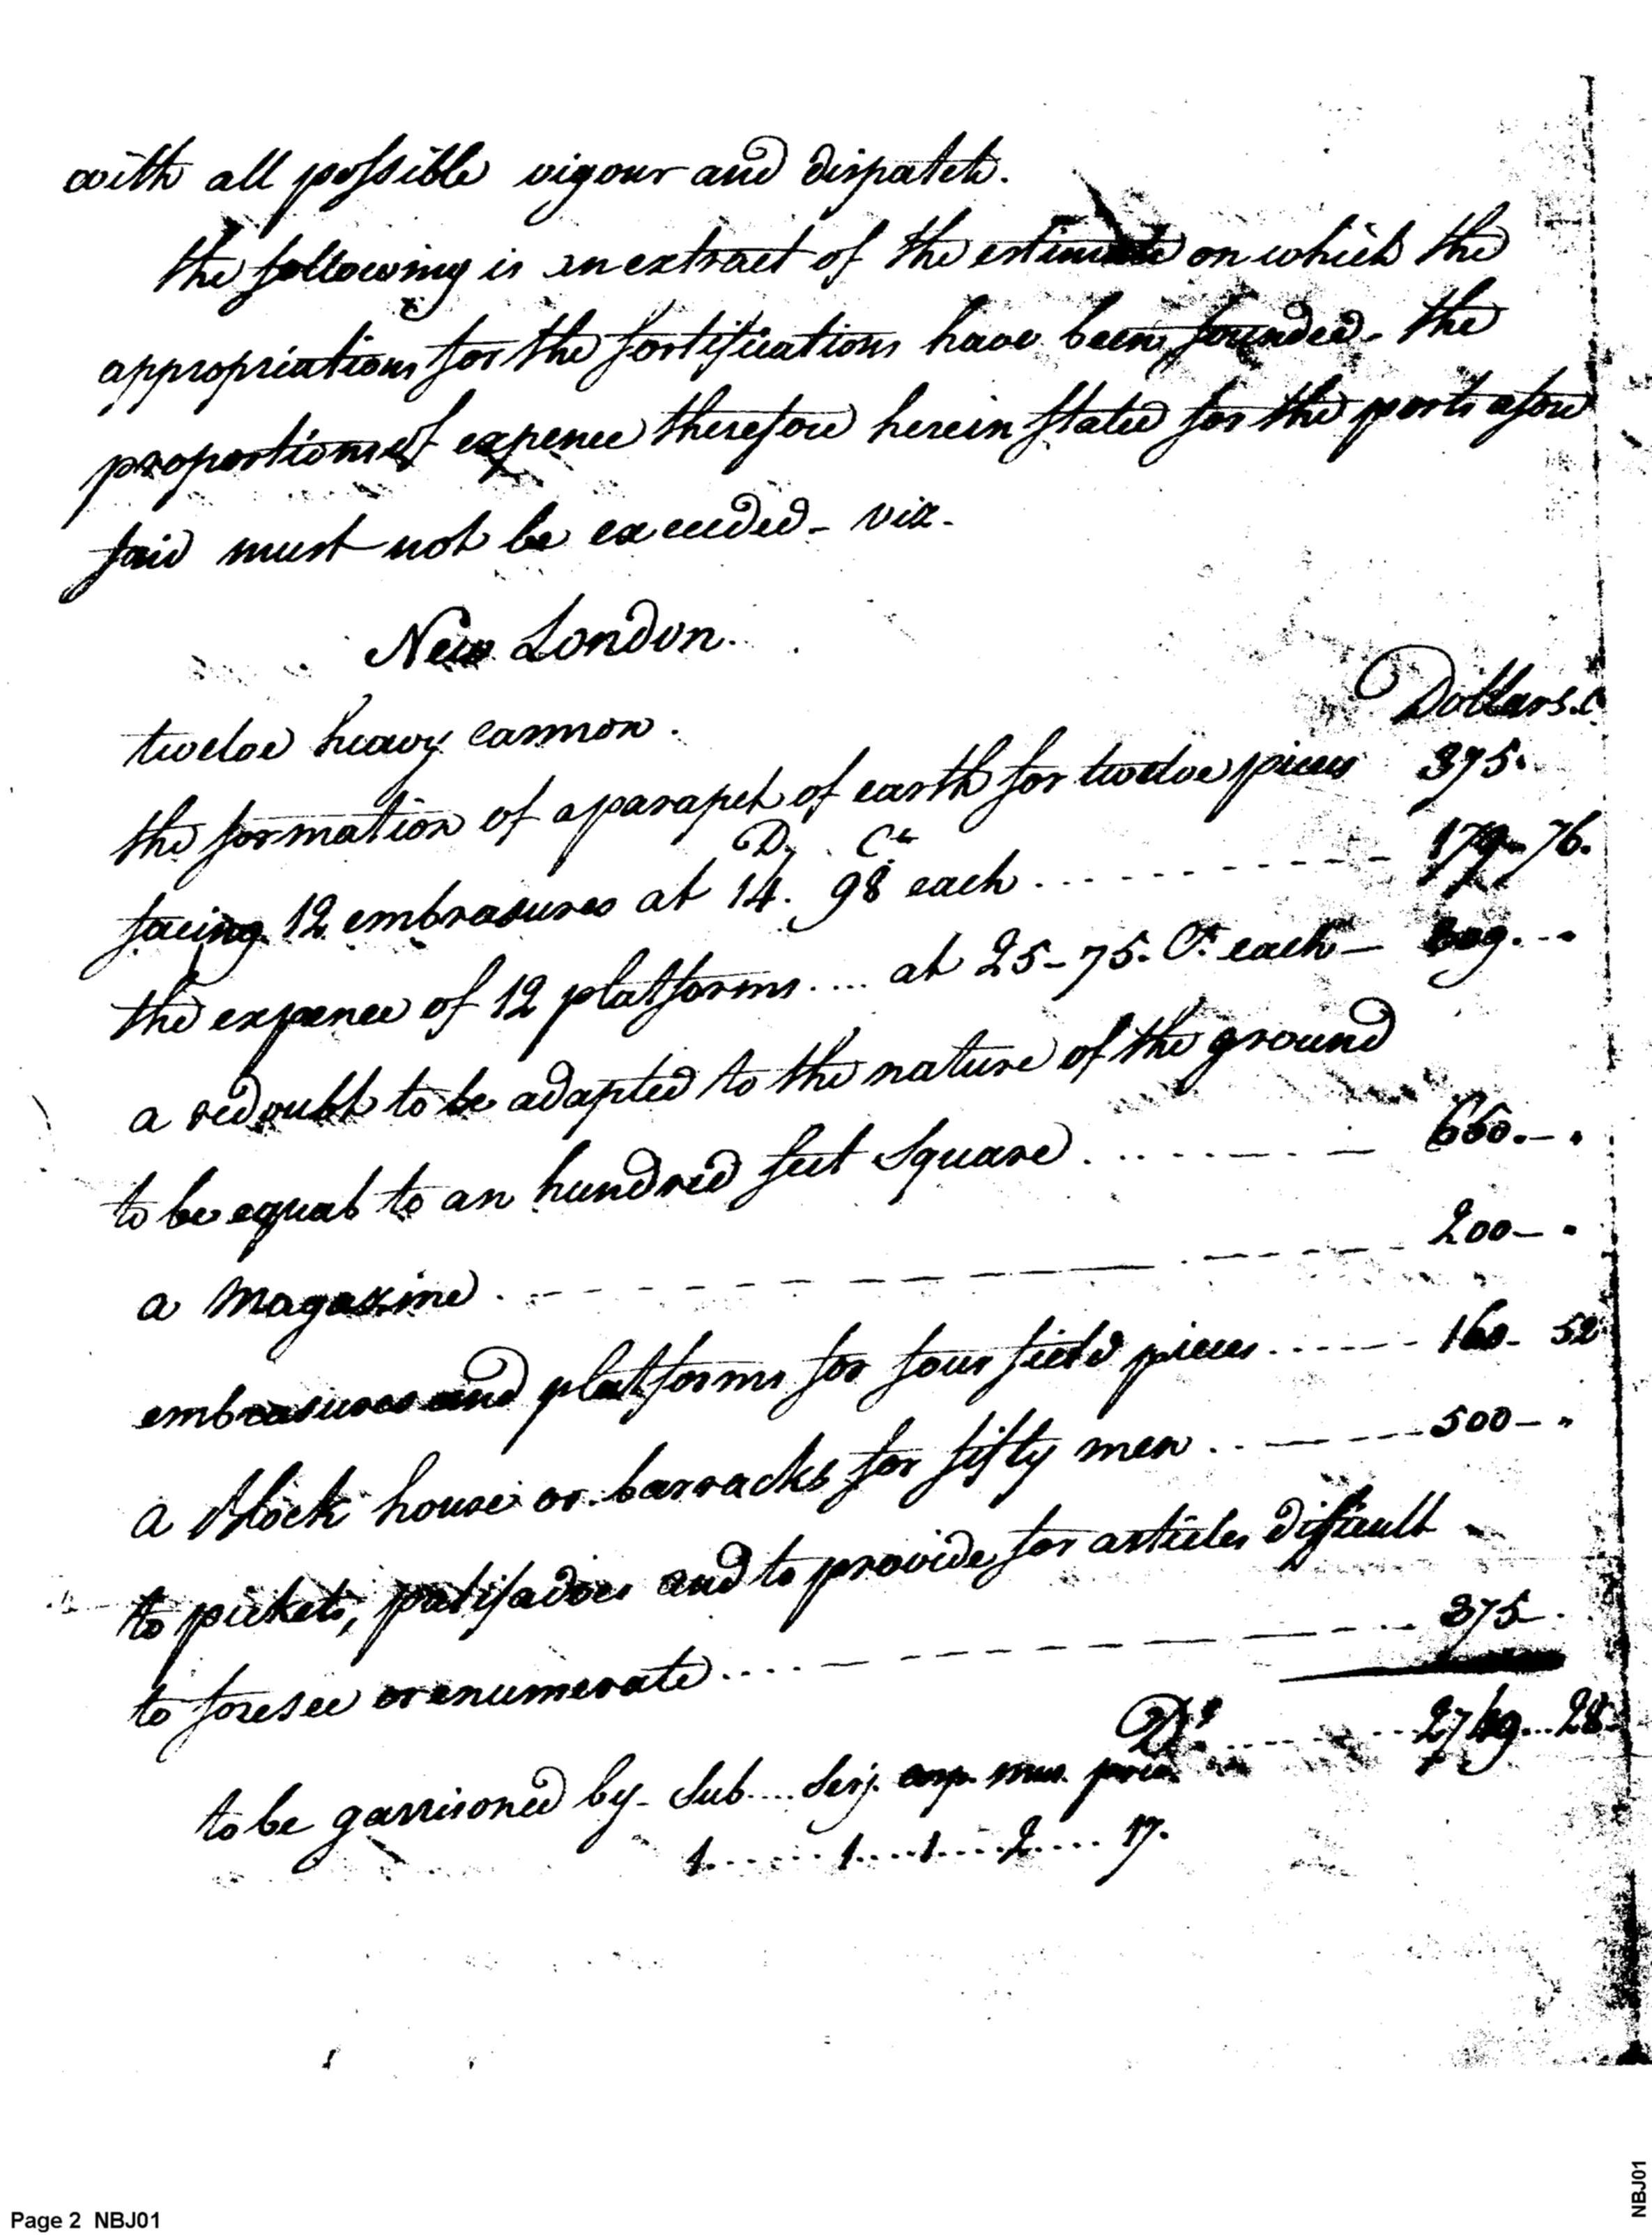 with all possible vigour and dispatch.
the following is an extract of the estimate on which the
appropriations for the fortifications have been founded. the
proportions of expence therefore herein stated for the ports afore
said must not be exceeded - viz -
New London.
Dollars. C
twelve heavy cannon.
the formation of a parapet of earth for twelve pieces 375.
D. Cts
facing 12 embrasures at 14. 98 each ............ 179 - 76.
the expence of 12 platforms .... at 25 - 75. Cts each - 309. - "
a redoubt to be adapted to the nature of the ground
to be equal to an hundred feet square ............ 650. - "
a magazine ............ 200 - "
embrasures and platforms for four field pieces ...... 160 - 52
a block house or barracks for fifty men ...... 500 - "
to pickets, palisadoes and to provide for articles difficult
to foresee or enumerate ............ 375 -
Ds. ...... 2749 ... 28
to be garrisoned by - Sub .... Serj. corp. mus. priv.
1 ...... 1 .... 1 .... 2 .... 17.
Page 2 NBJ01
NBJ01